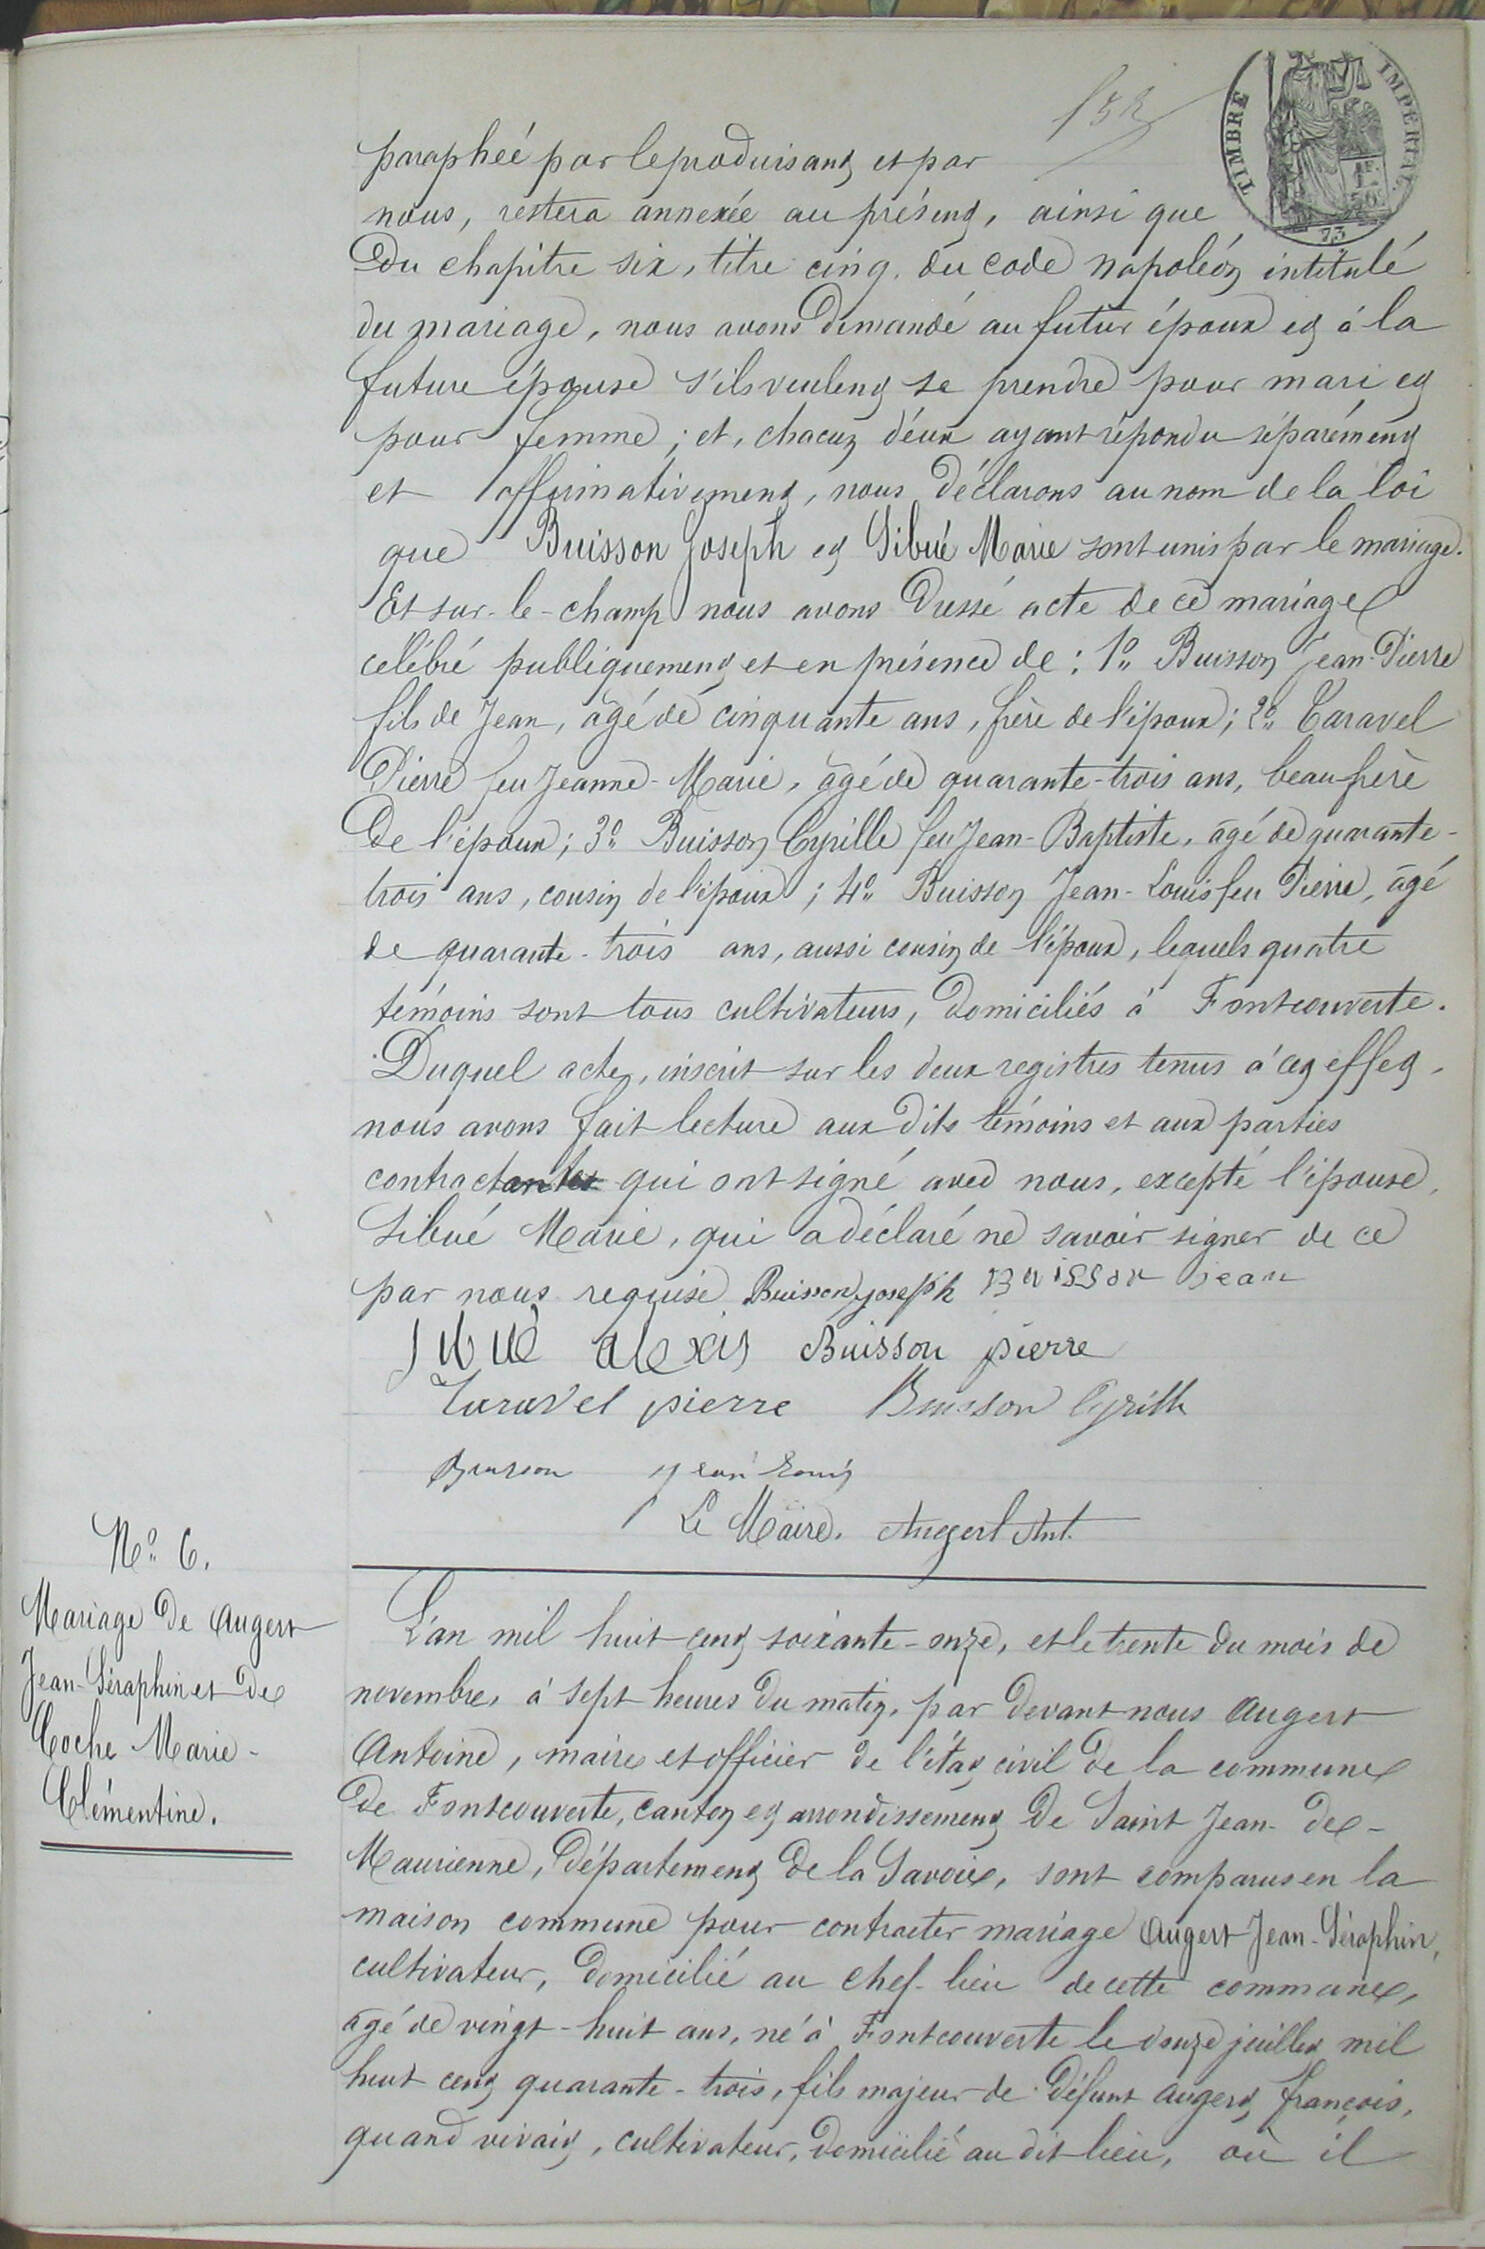 152
TIMBRE IMPÉRIAL
73
paraphée par le produisant et par
nous, restera annexée au présent, ainsi que
du chapitre six, titre cinq, du code Napoléon intitulé
du mariage, nous avons demandé au futur époux et à la
future épouse s'ils veulent se prendre pour mari et
pour femme ; et, chacun d'eux ayant répondu séparément
et affirmativement, nous déclarons au nom de la loi
que Buisson Joseph et Sibué Marie sont unis par le mariage.
Et sur-le-champ nous avons dressé acte de ce mariage
célébré publiquement et en présence de : 1º Buisson Jean-Pierre
fils de Jean, âgé de cinquante ans, frère de l'époux ; 2º Taravel
Pierre feu Jeanne-Marie, âgé de quarante-trois ans, beau frère
de l'époux ; 3º Buisson Cyrille feu Jean-Baptiste, âgé de quarante-
trois ans, cousin de l'époux ; 4º Buisson Jean-Louis feu Pierre, âgé
de quarante-trois ans, aussi cousin de l'époux, lequels quatre
témoins sont tous cultivateurs, domiciliés à Fontcouverte.
Duquel acte, inscrit sur les deux registres tenus à cet effet,
nous avons fait lecture aux dits témoins et aux parties
contractantes qui ont signé avec nous, excepté l'épouse,
Sibué Marie, qui a déclaré ne savoir signer de ce
par nous requise Buisson joseph Buisson jean
Sibué alexis Buisson pierre
Taravel pierre Buisson Cyrille
Buisson jean Louis
Le Maire, Augert Ant.
Nº 6.
Mariage de Augert
Jean-Séraphin et de
Coche Marie-
Clémentine.
L'an mil huit cent soixante-onze, et le trente du mois de
novembre, à sept heures du matin, par devant nous Augert
Antoine, maire et officier de l'état civil de la commune
de Fontcouverte, canton et arrondissement de Saint Jean-de-
Maurienne, département de la Savoie, sont comparus en la
maison commune pour contracter mariage Augert Jean-Séraphin,
cultivateur, domicilié au chef-lieu de cette commune,
âgé de vingt-huit ans, né à Fontcouverte le douze juillet mil
huit cent quarante-trois, fils majeur de défunt Augert françois,
quand vivait, cultivateur, domicilié au dit lieu, où il